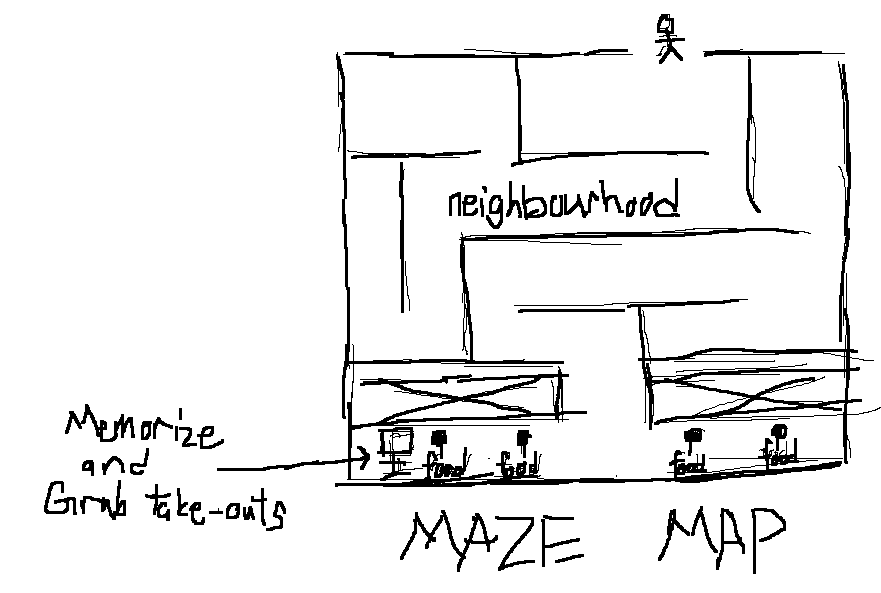 neighbourhood
Memorize
and
Grab take-outs
food food food food
MAZE MAP